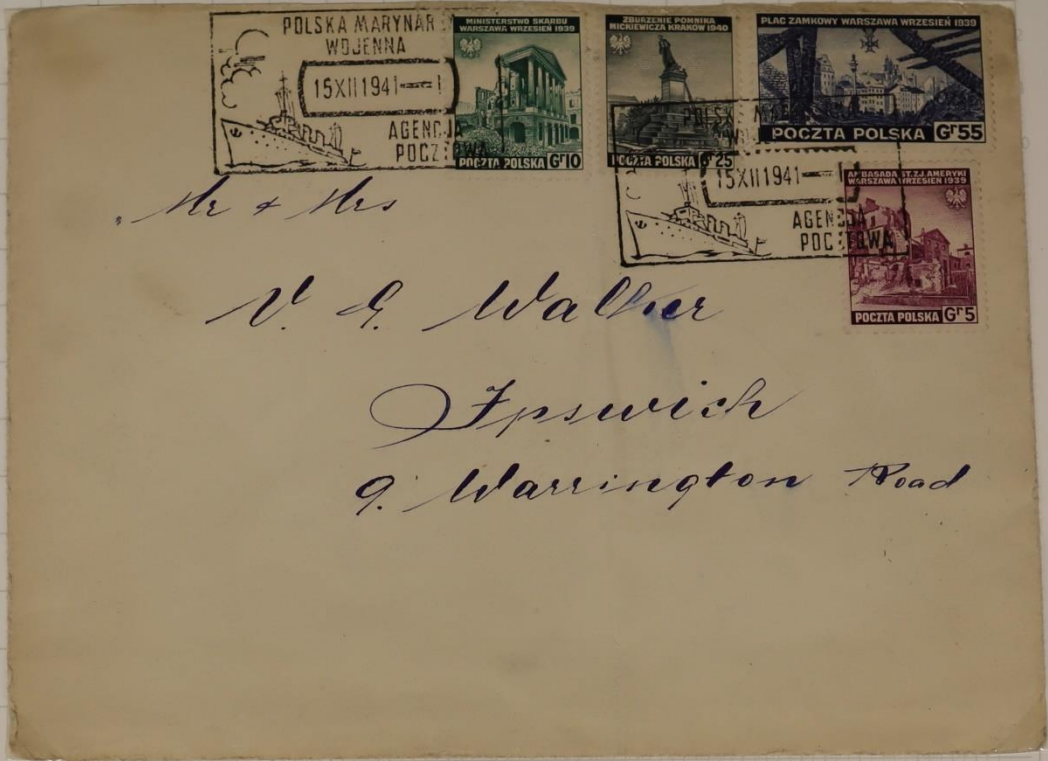 POLSKA MARYNAR
WOJENNA
15XII1941
AGENCJA
POCZTOWA
MINISTERSTWO SKARBU
WARSZAWA WRZESIEŃ 1939
POCZTA POLSKA Gr10
ZBURZENIE POMNIKA
MICKIEWICZA KRAKÓW 1940
POCZTA POLSKA Gr25
PLAC ZAMKOWY WARSZAWA WRZESIEŃ 1939
POCZTA POLSKA Gr55
POLSKA
15XII1941
AGENCJA
POCZTOWA
AMBASADA ST. ZJ. AMERYKI
WARSZAWA WRZESIEŃ 1939
POCZTA POLSKA Gr5
Mr & Mrs
V. G. Walker
Ipswich
9. Warrington Road